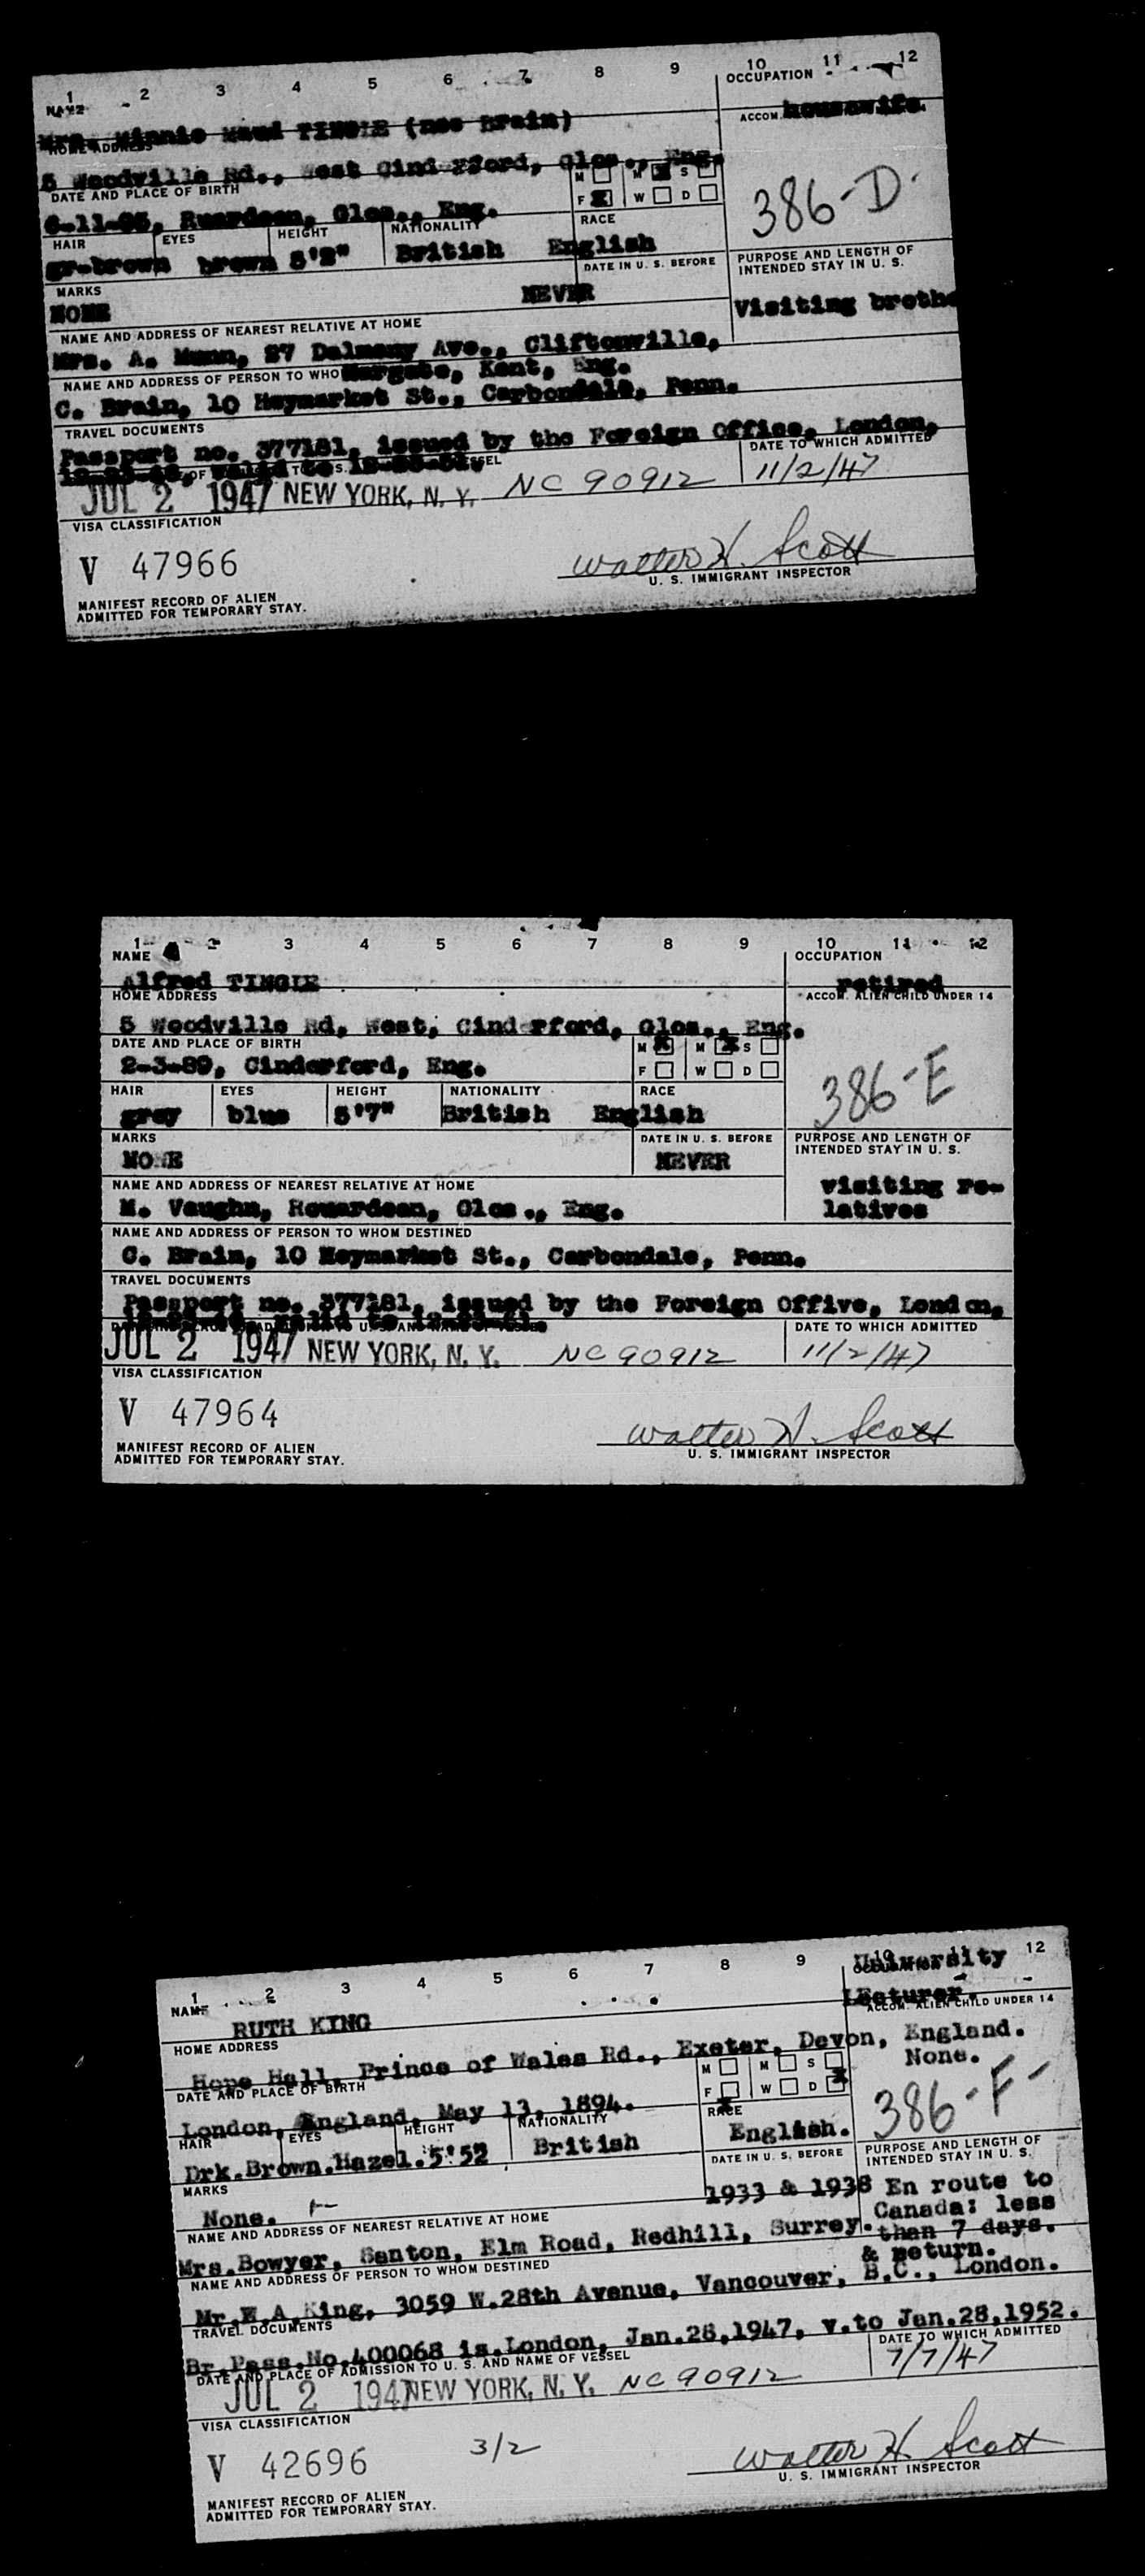 1 2 3 4 5 6 7 8 9 10 11 12
NAME
OCCUPATION
Mrs. Minnie Maud TINGLE (nee Brain)
housewife.
HOME ADDRESS
ACCOM.
5 Woodville Rd., West Cinderford, Glos., Eng.
DATE AND PLACE OF BIRTH
M M S
F W D
6-11-95, Ruardean, Glos., Eng.
386-D-
HAIR EYES HEIGHT NATIONALITY RACE
gr-brown brown 5'2" British English
MARKS
DATE IN U. S. BEFORE
PURPOSE AND LENGTH OF INTENDED STAY IN U. S.
NONE NEVER
Visiting brothe
NAME AND ADDRESS OF NEAREST RELATIVE AT HOME
Mrs. A. Munn, 27 Dalmeny Ave., Cliftonville,
NAME AND ADDRESS OF PERSON TO WHO Margate, Kent, Eng.
C. Brain, 10 Haymarket St., Carbondale, Penn.
TRAVEL DOCUMENTS
Passport no. 377181, issued by the Foreign Office, London,
valid to
DATE TO WHICH ADMITTED
JUL 2 1947 NEW YORK, N. Y. NC 90912 11/2/47
VISA CLASSIFICATION
V 47966
Walter H. Scott
U. S. IMMIGRANT INSPECTOR
MANIFEST RECORD OF ALIEN
ADMITTED FOR TEMPORARY STAY.
1 2 3 4 5 6 7 8 9 10 11 12
NAME
OCCUPATION
Alfred TINGLE
retired
HOME ADDRESS
ACCOM. ALIEN CHILD UNDER 14
5 Woodville Rd, West, Cinderford, Glos., Eng.
DATE AND PLACE OF BIRTH
M M S
F W D
2-3-89, Cinderford, Eng.
386-E
HAIR EYES HEIGHT NATIONALITY RACE
gray blue 5'7" British English
MARKS
DATE IN U. S. BEFORE
PURPOSE AND LENGTH OF INTENDED STAY IN U. S.
NONE NEVER
visiting re-
latives
NAME AND ADDRESS OF NEAREST RELATIVE AT HOME
M. Vaughn, Rouardean, Glos., Eng.
NAME AND ADDRESS OF PERSON TO WHOM DESTINED
C. Brain, 10 Heymarket St., Carbondale, Penn.
TRAVEL DOCUMENTS
Passport no. 377181, issued by the Foreign Offive, London,
valid to
DATE TO WHICH ADMITTED
JUL 2 1947 NEW YORK, N. Y. NC 90912 11/2/47
VISA CLASSIFICATION
V 47964
Walter H. Scott
U. S. IMMIGRANT INSPECTOR
MANIFEST RECORD OF ALIEN
ADMITTED FOR TEMPORARY STAY.
1 2 3 4 5 6 7 8 9 10 11 12
NAME
OCCUPATION
University
RUTH KING
Lecturer.
HOME ADDRESS
ACCOM. ALIEN CHILD UNDER 14
Hope Hall, Prince of Wales Rd., Exeter, Devon, England.
None.
DATE AND PLACE OF BIRTH
M M S
F W D
London, England, May 13, 1894.
386-F-
HAIR EYES HEIGHT NATIONALITY RACE
Drk.Brown.Hazel.5'5½ British English.
MARKS
DATE IN U. S. BEFORE
PURPOSE AND LENGTH OF INTENDED STAY IN U. S.
None. 1933 & 1938
En route to
Canada: less
than 7 days.
& return.
NAME AND ADDRESS OF NEAREST RELATIVE AT HOME
Mrs.Bowyer, Santon, Elm Road, Redhill, Surrey.
NAME AND ADDRESS OF PERSON TO WHOM DESTINED
Mr.E.A.King, 3059 W.28th Avenue, Vancouver, B.C., London.
TRAVEL DOCUMENTS
Br.Pass.No.400068 is.London, Jan.28,1947, v.to Jan.28,1952.
DATE AND PLACE OF ADMISSION TO U. S. AND NAME OF VESSEL
DATE TO WHICH ADMITTED
JUL 2 1947 NEW YORK, N. Y. NC 90912 7/7/47
VISA CLASSIFICATION
V 42696 3/2
Walter H. Scott
U. S. IMMIGRANT INSPECTOR
MANIFEST RECORD OF ALIEN
ADMITTED FOR TEMPORARY STAY.